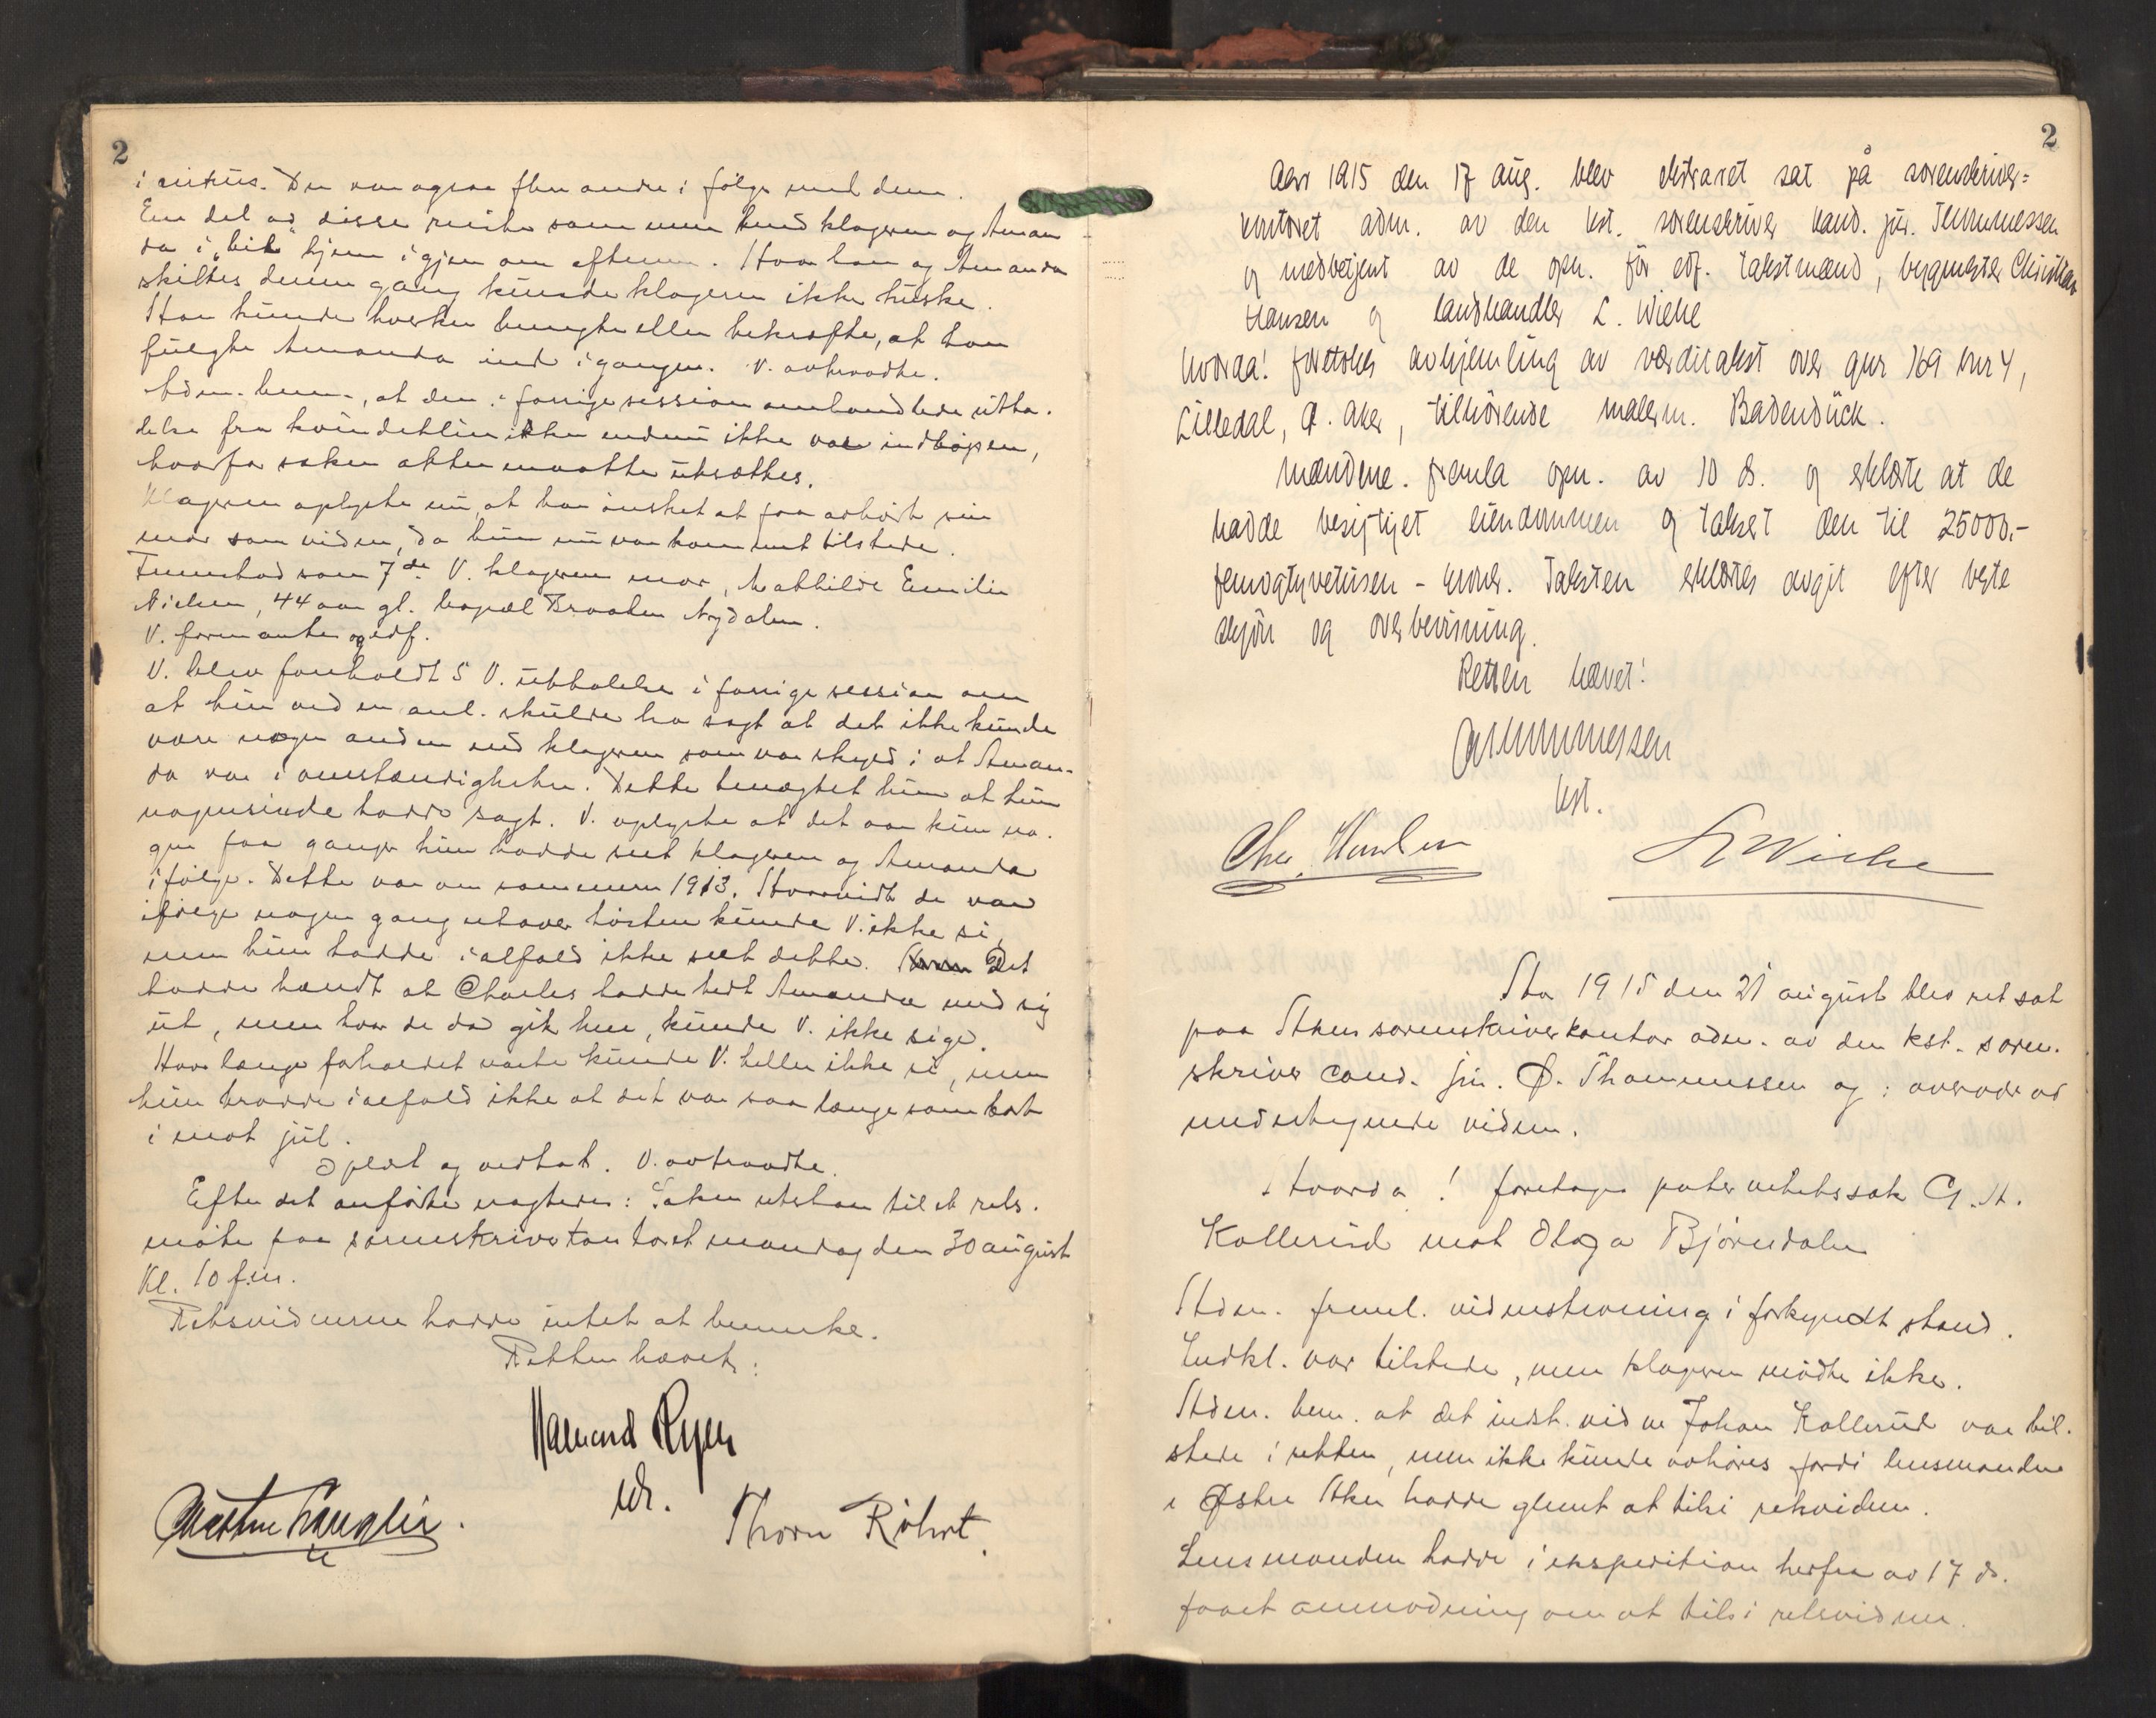 2
i cirkus. Der var ogsaa flere andre i følge med dem.
En del av disse reiste sammen med klageren og Aman
da i "bil" hjem igjen om aftenen. Hvor han og Amanda
skiltes denne gang kunde klageren ikke huske.
Han kunde hverken benegte eller bekræfte, at han
fulgte Amanda ind i gangen. V. avtraadte.
Adm. bem., at den i forrige session omhandlede utta-
delse fra kvindeklinikken endnu ikke var indløpen,
hvorfor saken atter maatte utsættes.
Klageren oplyste nu, at han ønsket at faa avhørt sin
mor som vidne, da hun nu var kommet tilstede.
Fremstod som 7de V. klagerens mor, Mathilde Emilie
Nielsen, 44 aar gl. bopæl Braaten Nydalen.
V. formantes og edf.
V. blev forholdt 5 V. uttalelse i forrige session om
at hun ved en anl. skulde ha sagt at det ikke kunde
være nogen anden end klageren som var skyld i at Aman-
da var i omstændigheter. Dette benegtet hun at hun
nogensinde hadde sagt. V. oplyste at det var kun no-
gen faa ganger hun hadde seet klageren og Amanda
i følge. Dette var om sommeren 1913. Hvorvidt de var
i følge nogen gang utover høsten kunde V. ikke si,
men hun hadde ialfald ikke seet dette. Det
hadde hændt at Charles hadde bedt Amanda med sig
ut, men hvor de da gik hen, kunde V. ikke sige.
Hvor længe forholdet varte kunde V. heller ikke si, men
hun trodde ialfald ikke at det var saa længe som bort
i mot jul.
Oplæst og vedtat. V. avtraadte.
Efter det anførte vagteres: Saken utstaar til et rets-
møte paa sorenskriverkontoret mandag den 30 august
Kl. 10 f.m.
Retsvidnerne hadde intet at bemerke.
Retten hævet:
Halvard Ryen
edr.
Thorv Röhrt.
2
Aar 1915 den 17 aug. blev ekstraret sat på sorenskriver-
kontoret adm. av den kst. sorenskriver kand. jur. Thommessen
og medbetjent av de opn. før edf. takstmænd, byggmester Christian
Hansen og landhandler L. Wiehe
hvorda! foretokes avhjemling av værditakst over gnr 169 bnr 4,
Lilledal, Ø. Aker, tilhørende malerm. Badendück.
Mændene fremla opn. av 10 ds. og erklærte at de
hadde besigtiget eiendommen og takset den til 25000,-
femogtyvetusen - kroner. Taksten erklærtes avgit efter beste
skjøn og overbevisning.
Retten hævet!
Ø Thommessen
kst.
Chr. Hansen
L Wiehe
Aar 1915 den 21 august blev ret sat
paa Akers sorenskriverkontor adm. av den kst. soren-
skriver cand. jur. Ø. Thommessen og i overvær av
undertegnede vidner.
Hvorda! foretages paternitetssak G. A.
Kollerud mot Olaga Bjørndalen
Adm. freml. vidnestevning i forkyndt stand.
Indkl. var tilstede, men klageren mødte ikke.
Adm. bem. at det indst. vidne Johan Kollerud var til-
stede i retten, men ikke kunde avhøres fordi lensmanden
i Østre Aker hadde glemt at tilsi retsvidner.
Lensmanden hadde i ekspedition herfra av 17 ds.
faaet anmodning om at tilsi retsvidner.